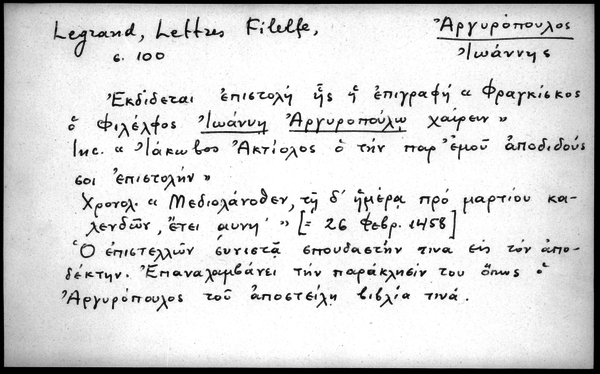 Legrand, Lettres Filelfe,
Ἀργυρόπουλος
Ἰωάννης
σ. 100
Ἐκδίδεται ἐπιστολή ἧς ἡ ἐπιγραφή « Φραγκίσκος
ὁ Φιλέλφος Ἰωάννῃ Ἀργυροπούλῳ χαίρειν »
Inc. « Ἰάκωβος Ἀκτίολος ὁ τήν παρ' ἐμοῦ ἀποδιδούς
σοι ἐπιστολήν »
Χρονολ. « Μεδιολάνοθεν, τῇ δ' ἡμέρᾳ πρό μαρτίου κα-
λενδῶν, ἔτει αυνη' » [= 26 Φεβρ. 1458]
Ὁ ἐπιστέλλων συνιστᾷ σπουδαστήν τινα εἰς τόν ἀπο-
δέκτην. Ἐπαναλαμβάνει τήν παράκλησίν του ὅπως ὁ
Ἀργυρόπουλος τοῦ ἀποστείλῃ βιβλία τινά.